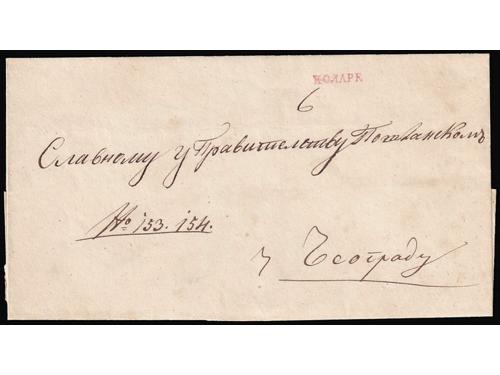 КОЛАРИ
6
Славному у Правительству Печканскомъ
No 153. 154.
у Београду